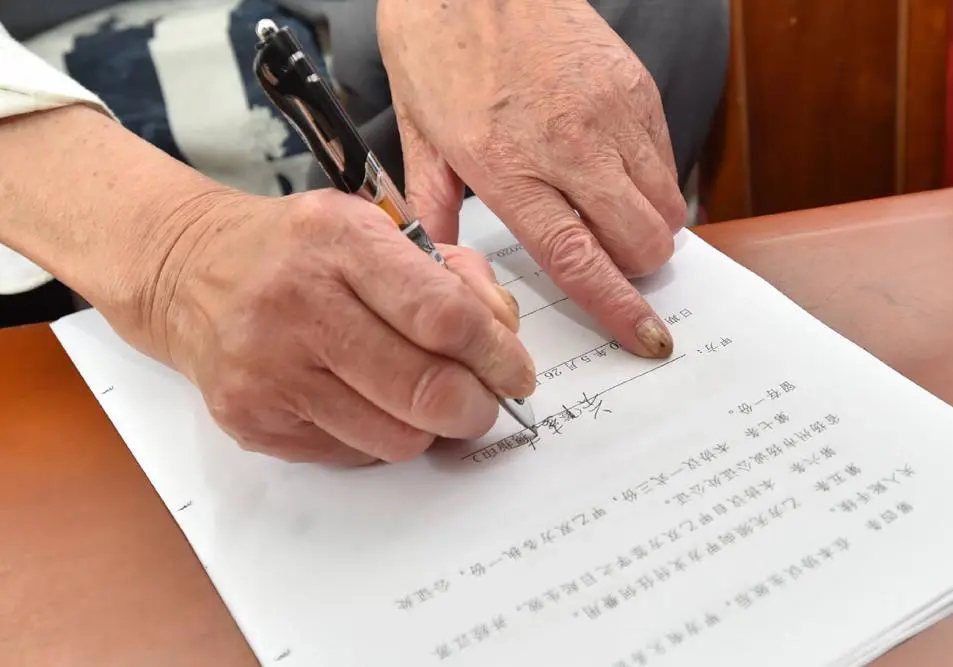 第四条 在本协议生效后，甲方有义务
第五条 乙方无须向甲方支付任何费用。
第六条 本协议自甲乙双方签字之日起生效，并经江苏
省扬州市扬诚公证处公证。
第七条 本协议一式三份，甲乙双方各执一份，公证处
留存一份。
甲方：
指印）
日期 0年5月26日
2020